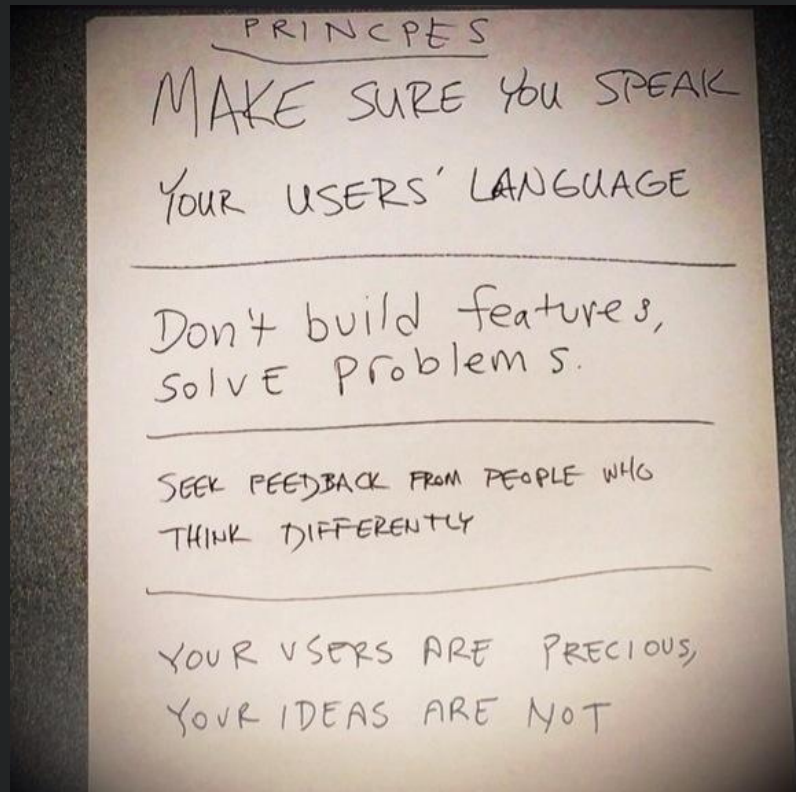 PRINCPES
MAKE SURE YOU SPEAK
YOUR USERS' LANGUAGE
Don't build features,
SolvE Problems.
SEEK FEEDBACK FROM PEOPLE WHO
THINK DIFFERENTLY
YOUR USERS ARE PRECIOUS,
YOUR IDEAS ARE NOT